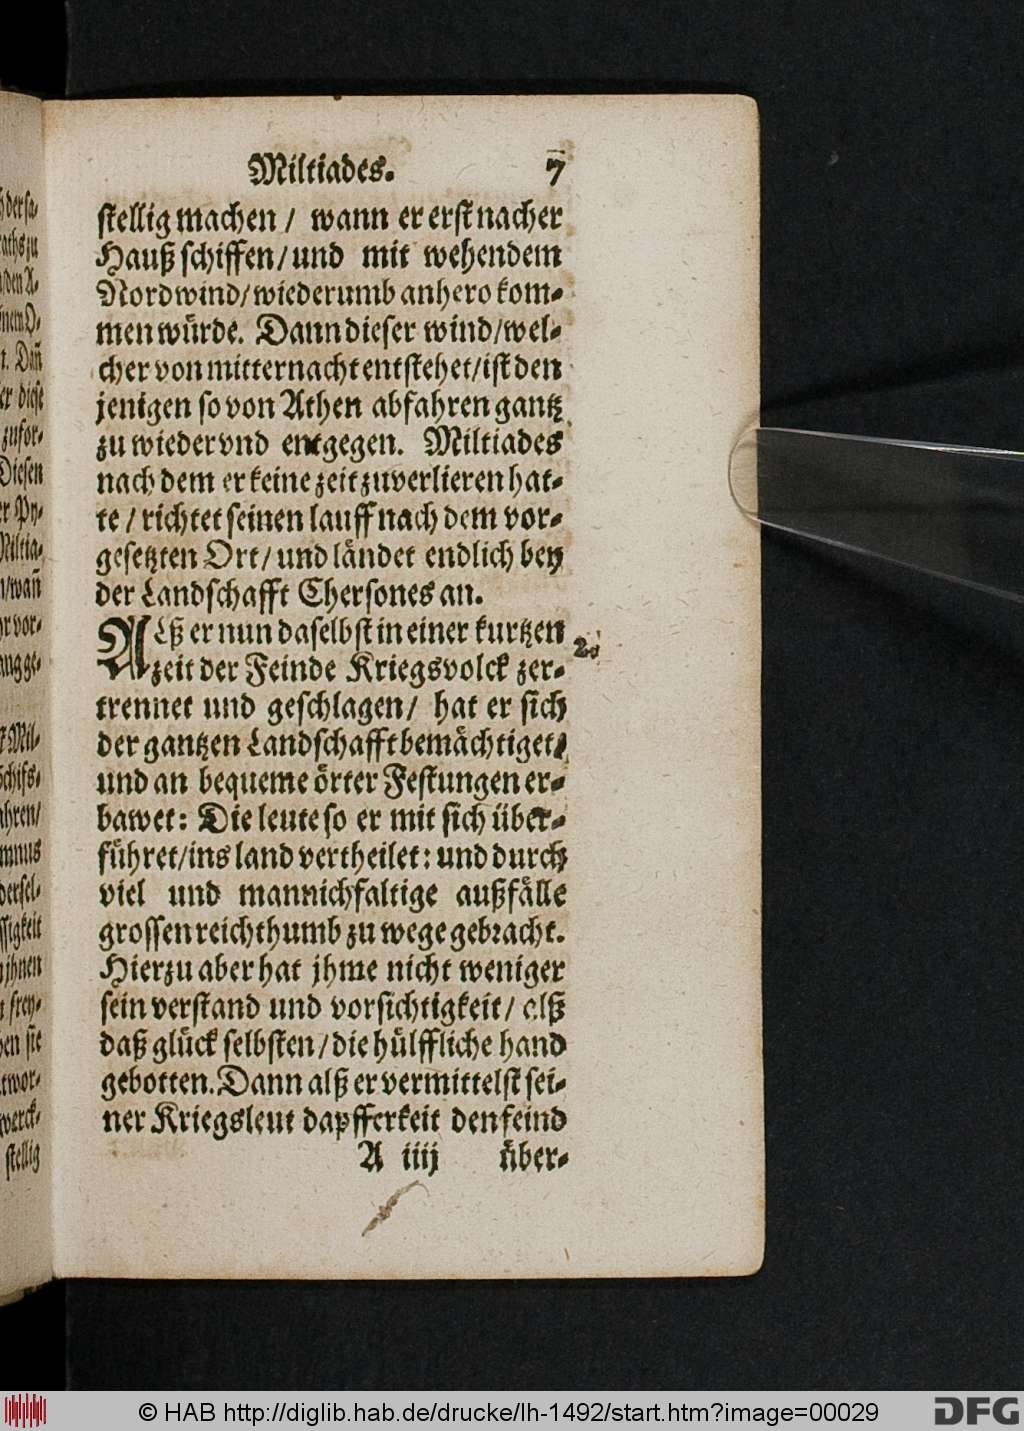 Miltiades. 7
stellig machen / wann er erst nacher
Hauß schiffen / und mit wehendem
Nordwind / wiederumb anhero kom-
men würde. Dann dieser wind / wel-
cher von mitternacht entstehet / ist den
jenigen so von Athen abfahren gantz
zu wieder vnd entgegen. Miltiades
nach dem er keine zeit zuverlieren hat-
te / richtet seinen lauff nach dem vor-
gesetzten Ort / und ländet endlich bey
der Landschafft Chersones an.
ALß er nun daselbst in einer kurtzen 2.
zeit der Feinde Kriegsvolck zer-
trennet und geschlagen / hat er sich
der gantzen Landschafft bemächtiget /
und an bequeme örter Festungen er-
bawet: Die leute so er mit sich über-
führet / ins land vertheilet: und durch
viel und mannichfaltige außfälle
grossen reichthumb zu wege gebracht.
Hierzu aber hat jhme nicht weniger
sein verstand und vorsichtigkeit / alß
daß glück selbsten / die hülffliche hand
gebotten. Dann alß er vermittelst sei-
ner Kriegsleut dapfferkeit den feind
A iiij über-
stellig
© HAB http://diglib.hab.de/drucke/lh-1492/start.htm?image=00029
DFG